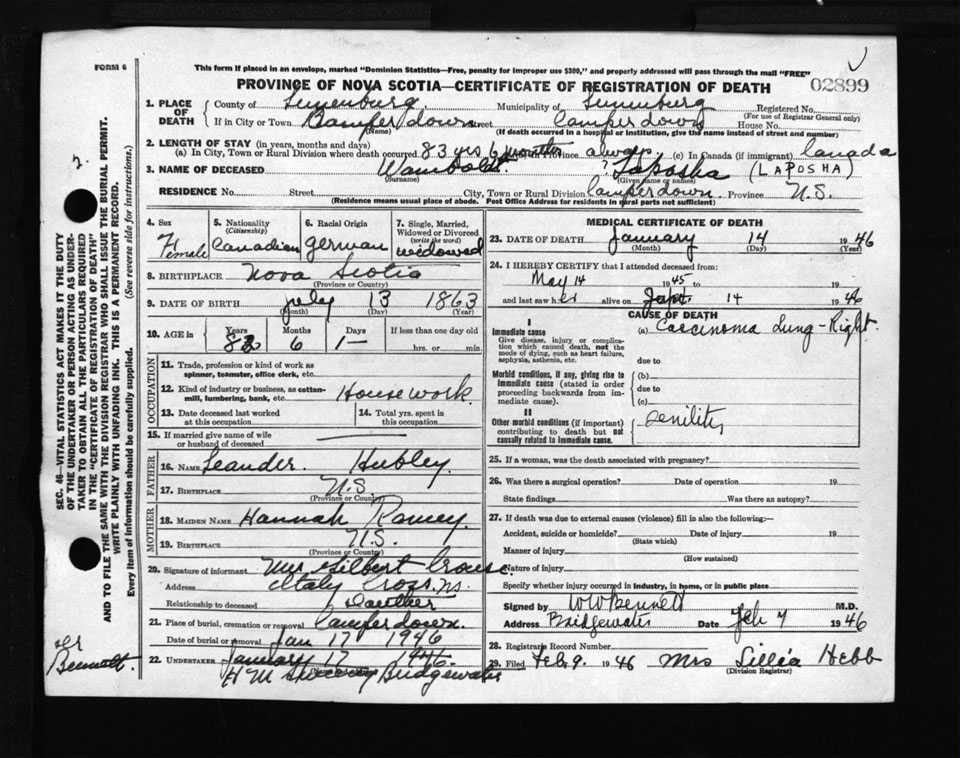 FORM 6
This form if placed in an envelope, marked "Dominion Statistics—Free, penalty for improper use $300," and properly addressed will pass through the mail "FREE"
02899
PROVINCE OF NOVA SCOTIA—CERTIFICATE OF REGISTRATION OF DEATH
1. PLACE OF DEATH
County of Lunenburg Municipality of Lunenburg Registered No.
(For use of Registrar General only)
If in City or Town Camperdown Street Camperdown House No.
(Name) (If death occurred in a hospital or institution, give the name instead of street and number)
2. LENGTH OF STAY (in years, months and days)
(a) In City, Town or Rural Division where death occurred 83 yrs 6 months Province always (c) In Canada (if immigrant) Canada
3. NAME OF DECEASED Wamboldt ? Laposha (LAPOSHA)
(Surname) (Given name or names)
RESIDENCE No. Street City, Town or Rural Division Camperdown Province N.S.
(Residence means usual place of abode. Post Office Address for residents in rural parts not sufficient)
4. Sex Female
5. Nationality (Citizenship) Canadian
6. Racial Origin German
7. Single, Married, Widowed or Divorced (write the word) widowed
8. BIRTHPLACE Nova Scotia
(Province or Country)
9. DATE OF BIRTH July 13 1863
(Month) (Day) (Year)
10. AGE in Years Months 6 Days 1 If less than one day old
hrs. or min.
OCCUPATION
11. Trade, profession or kind of work as spinner, teamster, office clerk, etc.
12. Kind of industry or business, as cotton-mill, lumbering, bank, etc. Housework.
13. Date deceased last worked at this occupation
14. Total yrs. spent in this occupation
15. If married give name of wife or husband of deceased
FATHER
16. NAME Leander Hubley
17. BIRTHPLACE N.S
(Province or Country)
MOTHER
18. MAIDEN NAME Hannah Ramey
19. BIRTHPLACE N.S.
(Province or Country)
20. Signature of informant Mrs Gilbert Crouse.
Address Italy Cross. N.S.
Relationship to deceased Daughter
21. Place of burial, cremation or removal Camperdown.
Date of burial or removal Jan 17 1946
22. UNDERTAKER January 17 1946
H M Bridgewater
MEDICAL CERTIFICATE OF DEATH
23. DATE OF DEATH January 14 1946
(Month) (Day) (Year)
24. I HEREBY CERTIFY that I attended deceased from:
May 14 1945 to 19
and last saw her alive on 14 1946
CAUSE OF DEATH
I
Immediate cause (a) Carcinoma Lung - Right.
Give disease, injury or complication which caused death, not the mode of dying, such as heart failure, asphyxia, asthenia, etc.
due to
Morbid conditions, if any, giving rise to immediate cause (stated in order proceeding backwards from immediate cause).
(b)
due to
(c)
II
Other morbid conditions (if important) contributing to death but not causally related to immediate cause. Senility
25. If a woman, was the death associated with pregnancy?
26. Was there a surgical operation? Date of operation 19
State findings Was there an autopsy?
27. If death was due to external causes (violence) fill in also the following:—
Accident, suicide or homicide? Date of injury 19
(State which)
Manner of injury
(How sustained)
Nature of injury
Specify whether injury occurred in industry, in home, or in public place
Signed by W W Bennett M.D.
Address Bridgewater Date Feb 7 1946
28. Registrars Record Number
29. Filed Feb. 9. 1946 Mrs Lillia Hebb
(Division Registrar)
2.
SEC. 46—VITAL STATISTICS ACT MAKES IT THE DUTY
OF THE UNDERTAKER OR PERSON ACTING AS UNDER-
TAKER TO OBTAIN ALL THE PARTICULARS REQUIRED
IN THE "CERTIFICATE OF REGISTRATION OF DEATH"
AND TO FILE THE SAME WITH THE DIVISION REGISTRAR WHO SHALL ISSUE THE BURIAL PERMIT.
WRITE PLAINLY WITH UNFADING INK. THIS IS A PERMANENT RECORD.
Every item of information should be carefully supplied. (See reverse side for instructions.)
Dr
Bennett.